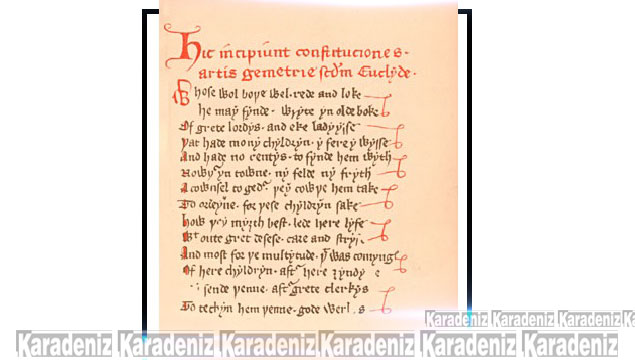 Hic incipiunt constituciones.
artis gemetrie scdm Euclyde.
Whose wol boþe wel. rede and loke
he may fynde. wryte yn olde boke
Of grete lordys. and eke ladyysse
Þat hade mony chyldryn. y fere y wysse
And hade no rentys. to fynde hem wyth
Nowþr yn towne. ny felde ny fryth
A cownsel to gedr þey cowþe hem take
To ordeyne. for þese chyldryn sake
how þey myȝth best. lede here lyfe
Wt oute gret desese. care and stryf
And most for þe multytude. þt was
Of here chyldryn. aftr here
sende þenne. aftr grete clerkys
To techyn hem þenne. gode
Karadeniz Karadeniz Karadeniz
Karadeniz Karadeniz Karadeniz Karadeniz Karadeniz